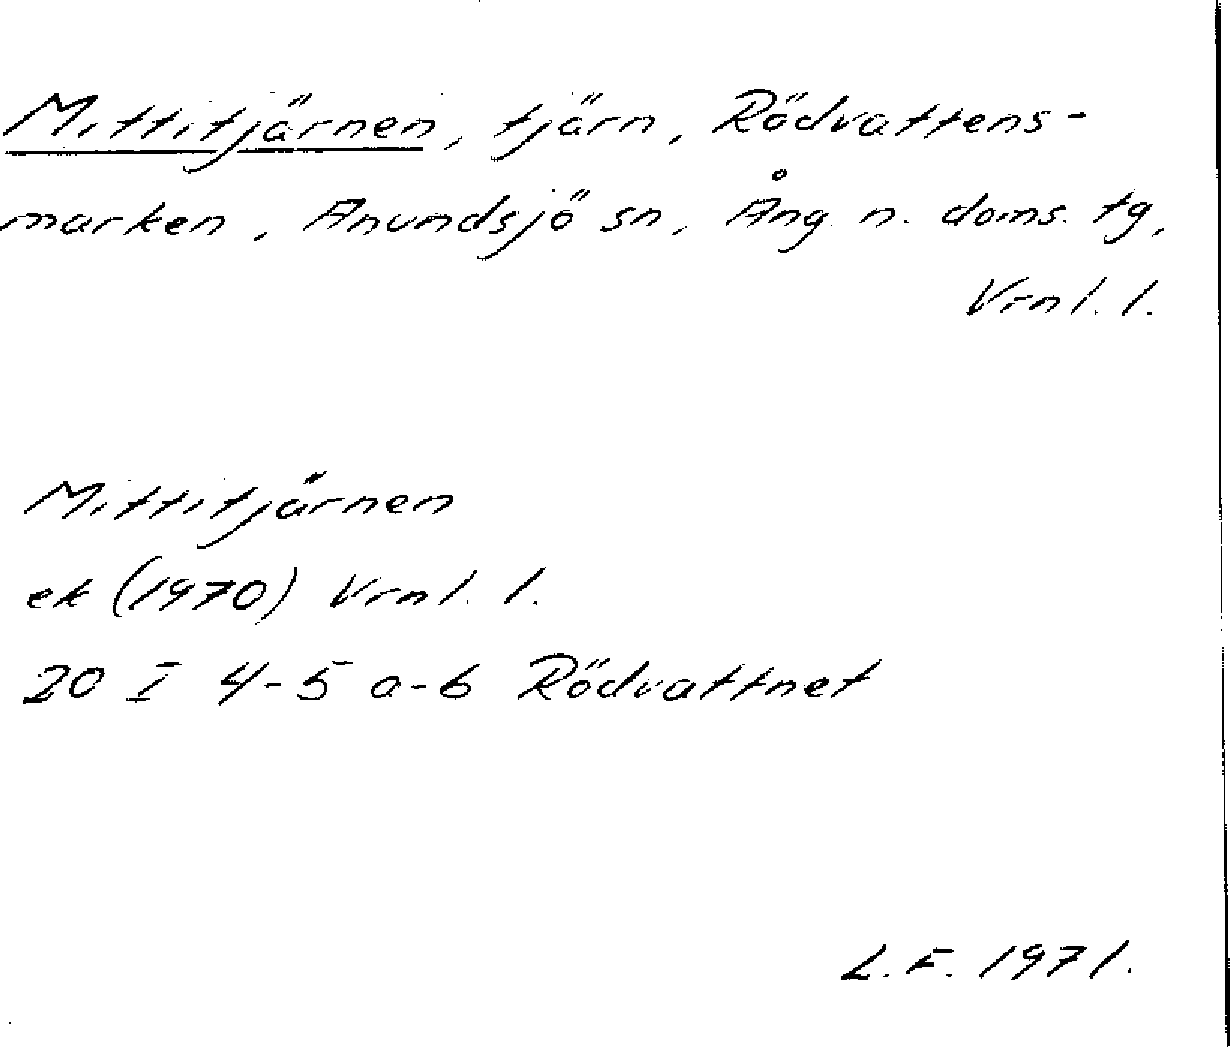 Mittitjärnen, tjärn, Rödvattens-
marken, Anundsjö sn, Ång. n. doms. tg,
Vrnl. l.
Mittitjärnen
ek (1970) Vrnl. l.
20 I 4-5 a-b Rödvattnet
L.F. 1971.